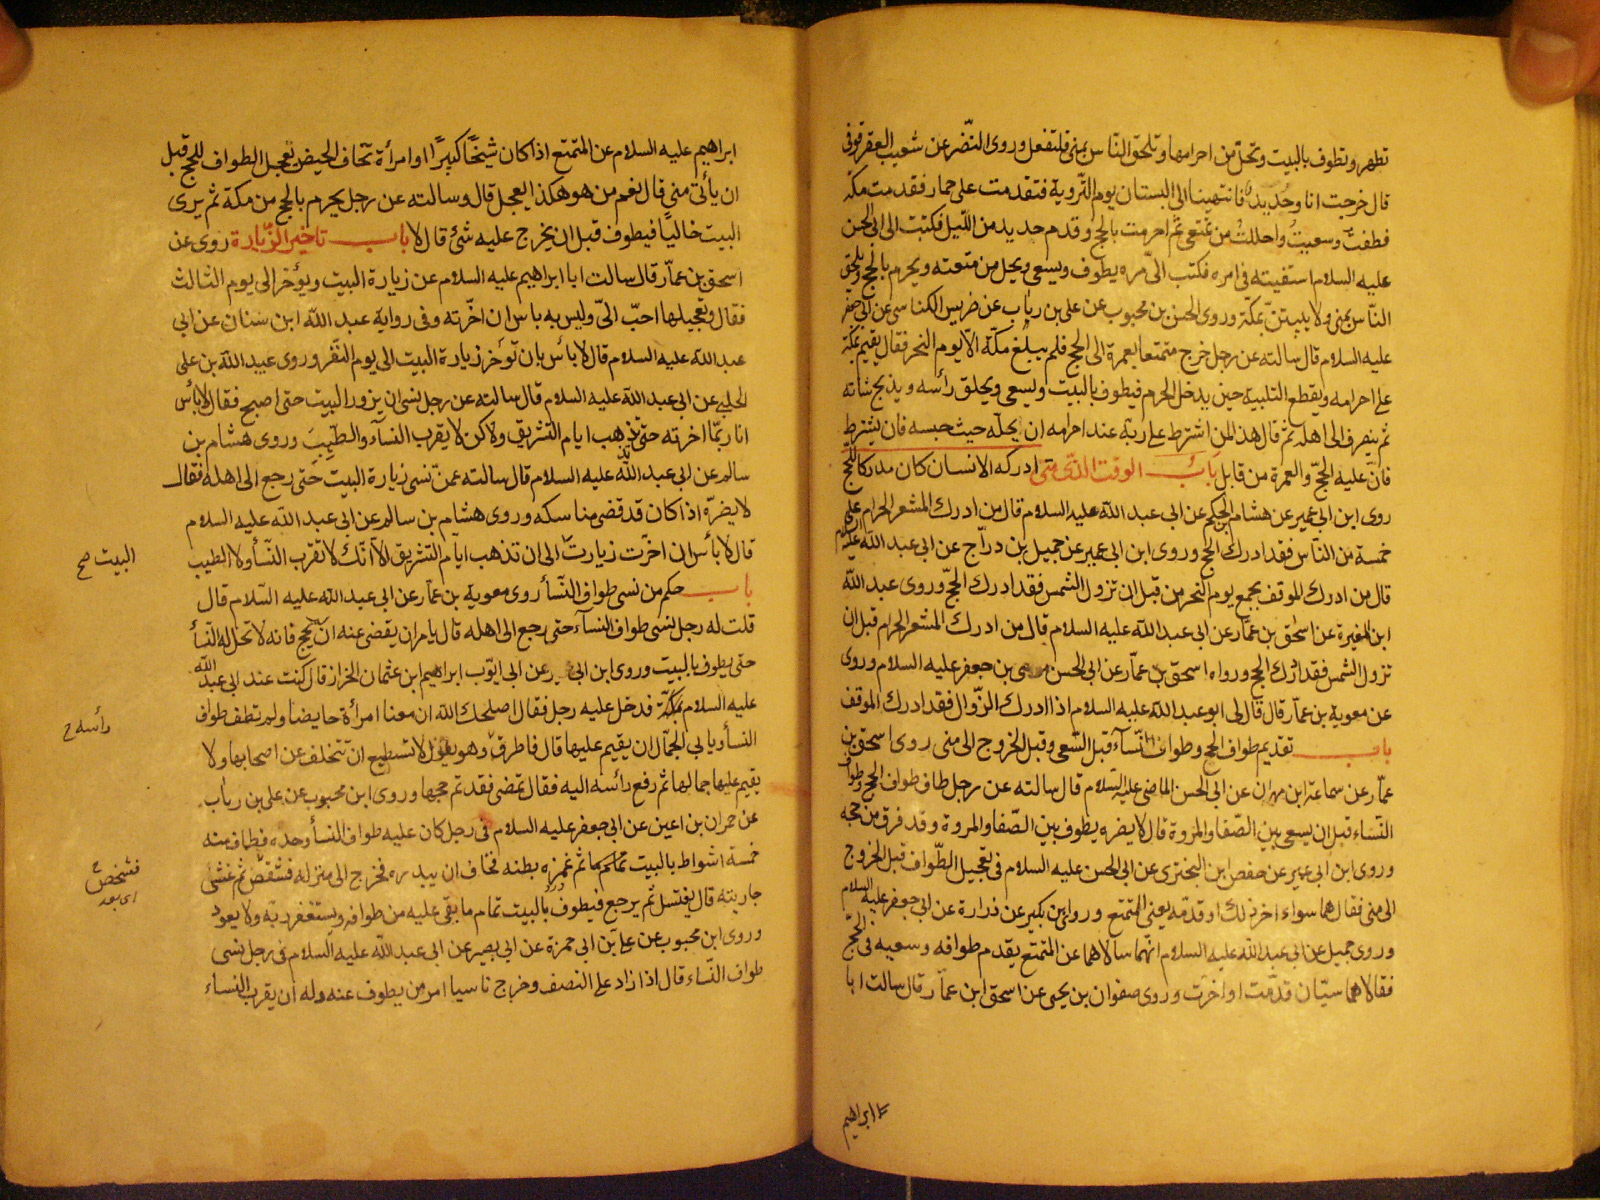 تطهر وتطوف بالبيت وتحل من احرامها وتلحق الناس بمنى فلتفعل وروى النضر عن شعيب العقرقوفى
قال خرجت انا وحديد فانتهينا الى البستان يوم التروية فتقدمت على حمار فقدمت مكة
فطفت وسعيت واحللت من تمتعى ثم احرمت بالحج وقدم حديد من الليل فكتبت الى ابى الحسن
عليه السلام استفتيته فى امره فكتب الىّ مره يطوف ويسعى ويحل من متعته ويحرم بالحج ويلحق
الناس بمنى ولا يبيتن بمكة وروى الحسن بن محبوب عن على بن رباب عن ضريس الكناسى عن ابى جعفر
عليه السلام قال سالته عن رجل خرج متمتعا بعمرة الى الحج فلم يبلغ مكة الا يوم النحر فقال يقيم بمكة
على احرامه ويقطع التلبية حين يدخل الحرم فيطوف بالبيت ويسعى ويحلق رأسه ويذبح شاته
ثم ينصرف الى اهله ثم قال هذا لمن اشترط على ربه عند احرامه ان يحله حيث حبسه فان لم يشترط
فان عليه الحج والعمرة من قابل باب الوقت الذى متى ادركه الانسان كان مدركا للحج
روى ابن ابى عمير عن هشام بن الحكم عن ابى عبد الله عليه السلام قال من ادرك المشعر الحرام على
خمسة من الناس فقد ادرك الحج وروى ابن ابى عمير عن جميل بن دراج عن ابى عبد الله عليه السلام
قال من ادرك الموقف بجمع يوم النحر من قبل ان تزول الشمس فقد ادرك الحج وروى عبد الله
ابن المغيرة عن اسحق بن عمار عن ابى عبد الله عليه السلام قال من ادرك المشعر الحرام قبل ان
تزول الشمس فقد ادرك الحج ورواه اسحق بن عمار عن ابى الحسن موسى بن جعفر عليه السلام وروى
عن معوية بن عمار قال قال لى ابو عبد الله عليه السلام اذا ادرك الزوال فقد ادرك الموقف
باب تقديم طواف الحج وطواف النساء قبل السعى وقبل الخروج الى منى روى اسحق بن
عمار عن سماعة ابن مهران عن ابى الحسن الماضى عليه السلام قال سالته عن رجل طاف طواف الحج وطواف
النساء قبل ان يسعى بين الصفا والمروة قال لا يضره يطوف بين الصفا والمروة وقد فرق من حجه
وروى ابن ابى عمير عن حفص ابن البخترى عن ابى الحسن عليه السلام فى تعجيل الطواف قبل الخروج
الى منى فقال هما سواء اخر ذلك او قدمه يعنى المتمتع وروى ابن بكير عن زرارة عن ابى جعفر عليه السلام
وروى جميل عن ابى عبد الله عليه السلام انهما سالاهما عن المتمتع يقدم طوافه وسعيه فى الحج
فقالا هما سيّان قدمت او اخرت وروى صفوان بن يحيى عن اسحق ابن عمار قال سالت ابا
ابراهيم
ابراهيم عليه السلام عن المتمتع اذا كان شيخا كبيرا او امرأة تخاف الحيض تعجل الطواف للحج قبل
ان يأتى منى قال نعم من هو هكذا يعجل قال وسالته عن رجل يحرم بالحج من مكة ثم يرى
البيت خاليا فيطوف قبل ان يخرج عليه شئ قال لا باب تاخير الزيارة روى عن
اسحق بن عمار قال سالت ابا ابراهيم عليه السلام عن زيارة البيت ويؤخر الى يوم الثالث
فقال وتعجيلها احب الىّ وليس به باس ان اخرته وفى رواية عبد الله ابن سنان عن ابى
عبد الله عليه السلام قال لا بأس بان تؤخر زيارة البيت الى يوم النفر وروى عبيد الله بن على
الحلبى عن ابى عبد الله عليه السلام قال سالته عن رجل نسى ان يزور البيت حتى اصبح فقال لا بأس
انا ربما اخرته حتى تذهب ايام التشريق ولاكن لا يقرب النساء والطيب وروى هشام بن
سالم عن ابى عبد الله عليه السلام قال سالته عمن نسى زيارة البيت حتى رجع الى اهله فقال
لا يضره اذا كان قد قضى مناسكه وروى هشام بن سالم عن ابى عبد الله عليه السلام
قال لا بأس ان اخرت زيارت الى ان تذهب ايام التشريق الا انك لا تقرب النساء ولا الطيب
البيت صح
باب حكم من نسى طواف النساء روى معوية بن عمار عن ابى عبد الله عليه السلام قال
قلت له رجل نسى طواف النساء حتى رجع الى اهله قال يامر ان يقضى عنه ان لم يحج فانه لا تحل له النساء
حتى يطوف بالبيت وروى ابن ابى عمير عن ابى ايوب ابراهيم ابن عثمان الخزاز قال كنت عند ابى عبد الله
عليه السلام بمكة فدخل عليه رجل فقال اصلحك الله ان معنا امرأة حايضا ولم تطف طواف
النساء ويابى الجمال ان يقيم عليها قال فاطرق وهو يقول لا تستطيع ان تتخلف عن اصحابها ولا
رأسه ح
يقيم عليها جمالها ثم رفع رأسه اليه فقال تمضى فقد تم حجها وروى ابن محبوب عن على بن رباب
عن حمران بن اعين عن ابى جعفر عليه السلام فى رجل كان عليه طواف النساء وحده فطاف منه
خمسة اشواط بالبيت ثم غمزه بطنه فخاف ان يبدره فخرج الى منزله فنقض ثم غشى
فشخص ح
جاريته قال يغتسل ثم يرجع فيطوف بالبيت تمام ما بقى عليه من طوافه ويستغفر ربه ولا يعود
وروى ابن محبوب عن على بن ابى حمزة عن ابى بصير عن ابى عبد الله عليه السلام فى رجل نسى
طواف النساء قال اذا زاد على النصف وخرج ناسيا امر من يطوف عنه وله ان يقرب النساء